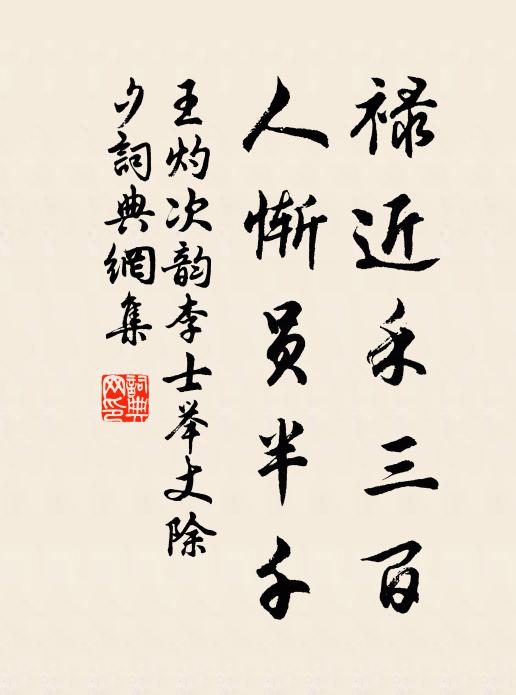 禄近禾三百
人惭员半千
王灼次韵李士举丈除
夕詞典網集
詞典
网印